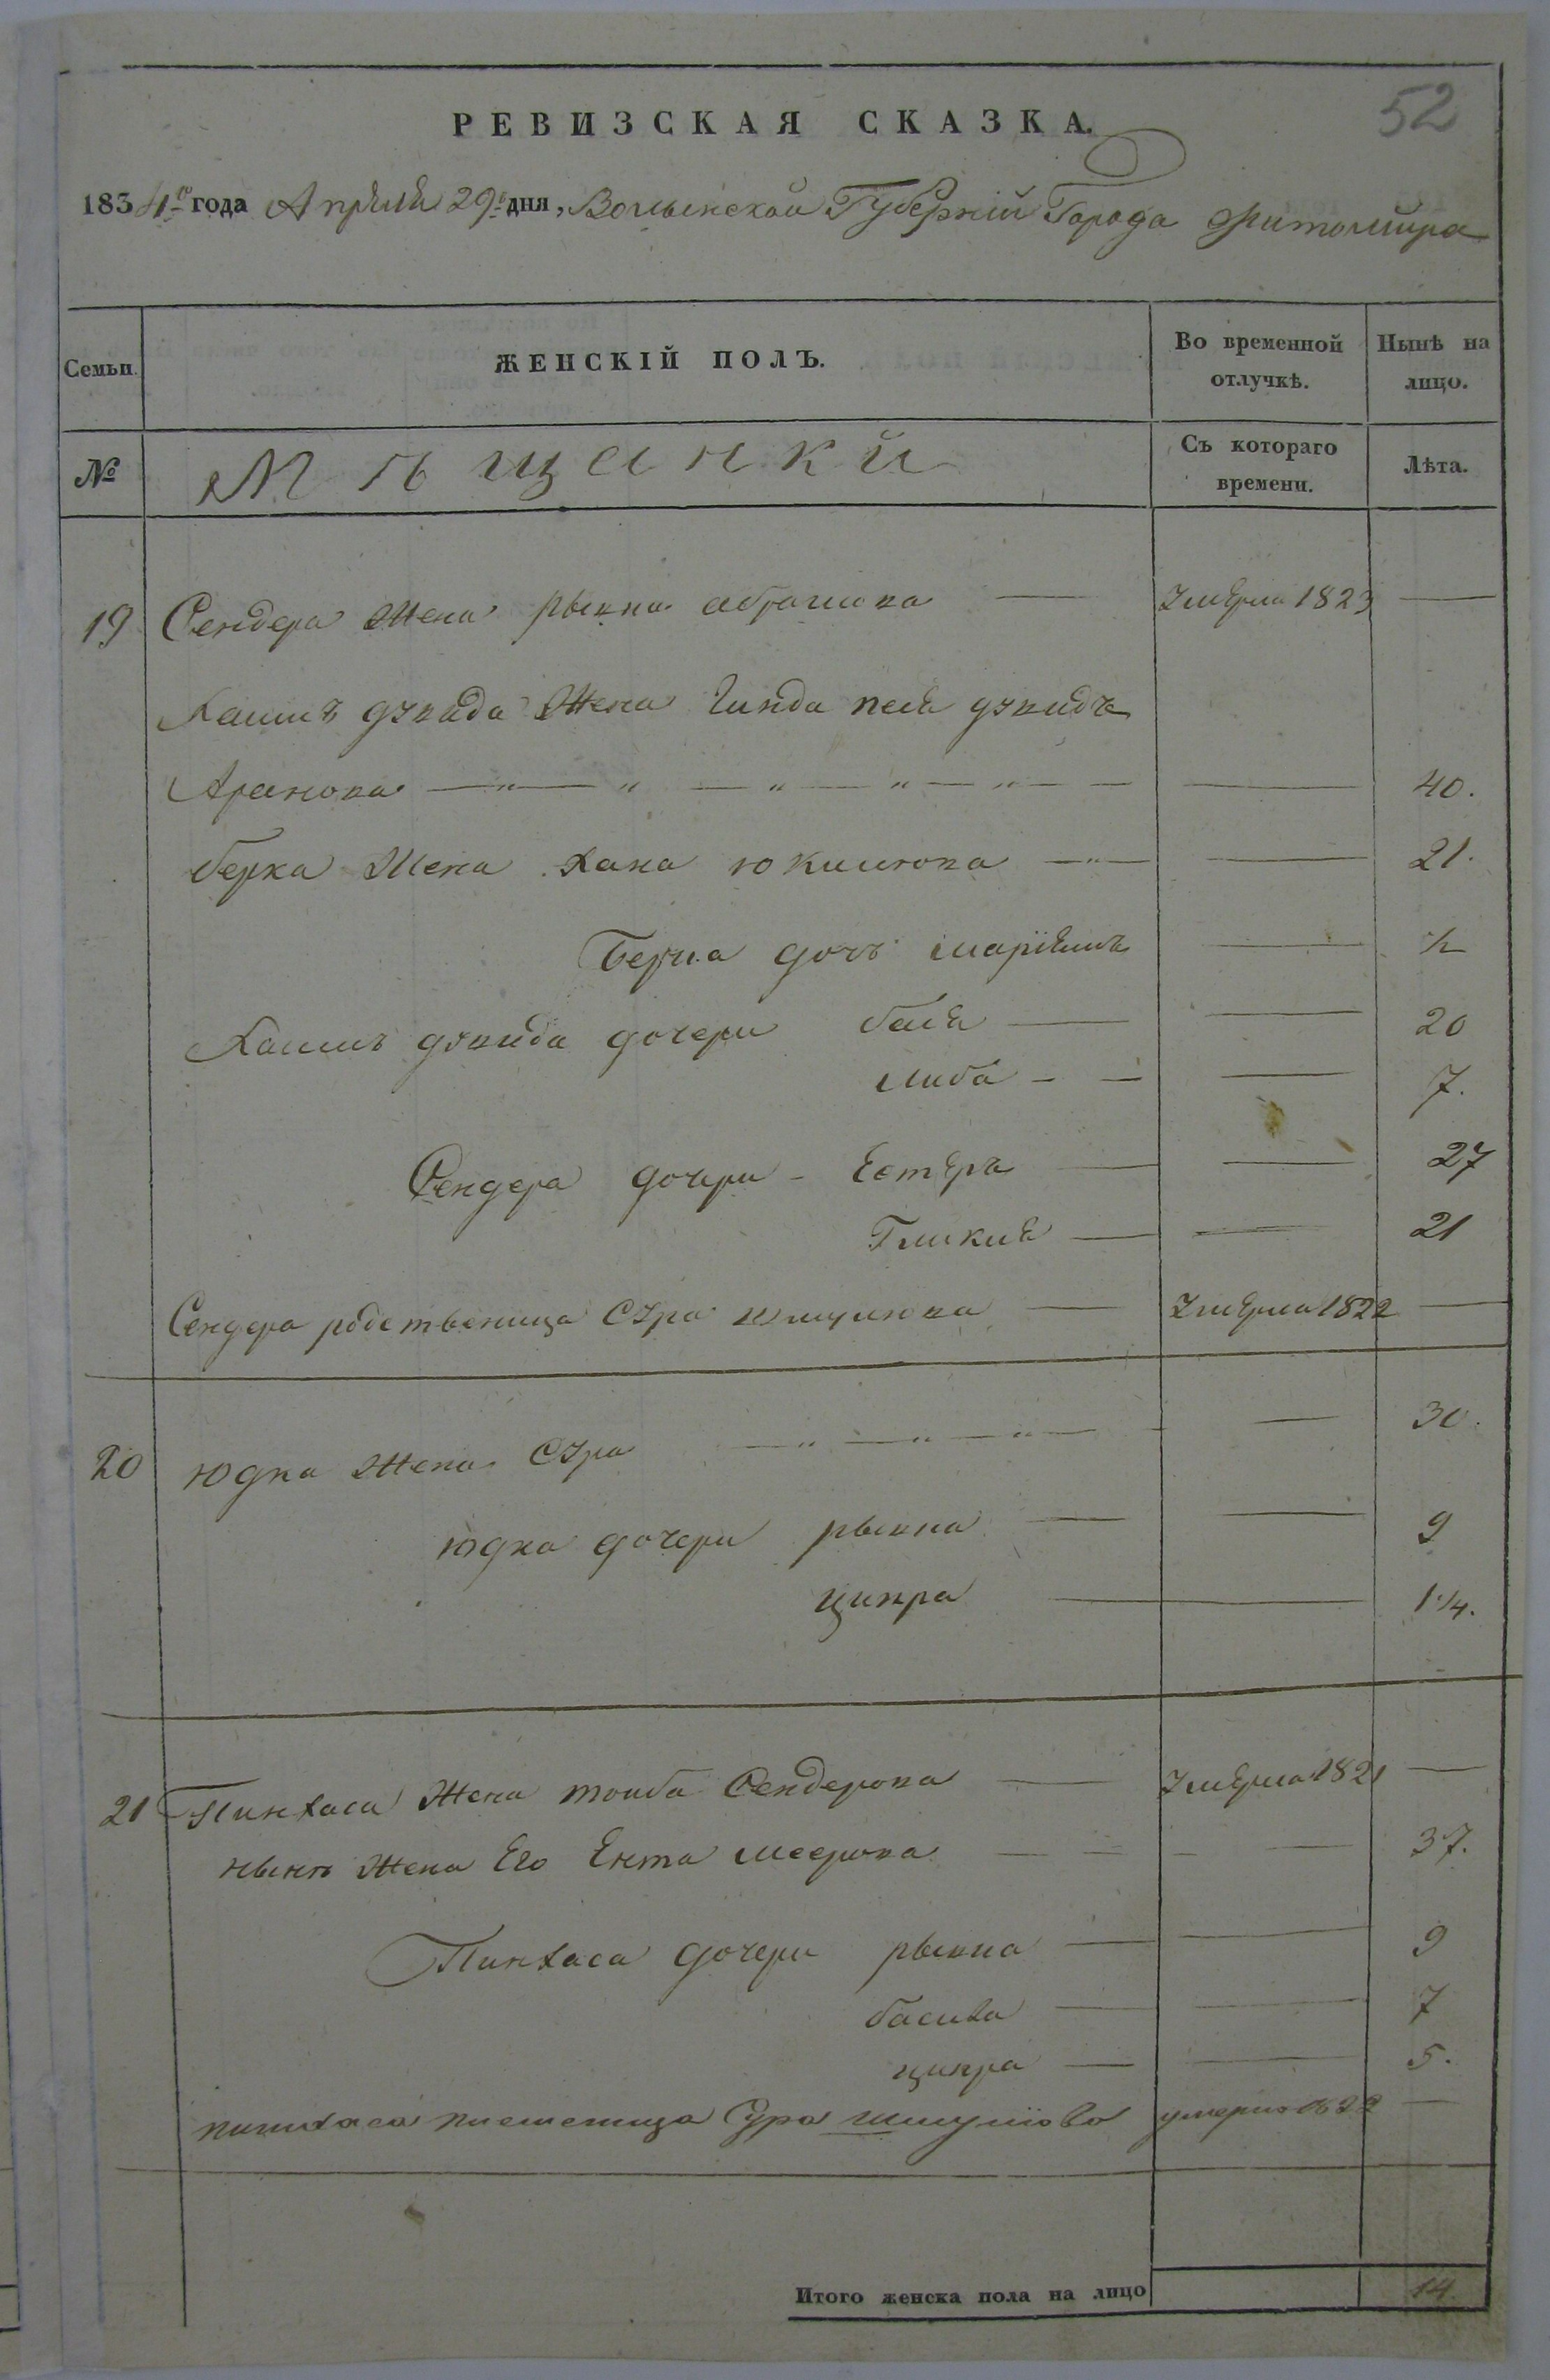 52
РЕВИЗСКАЯ СКАЗКА.
1834го года Апреля 29го дня, Волынской Губерніи Города Житомира
Семьи. ЖЕНСКІЙ ПОЛЪ. Во временной отлучкѣ. Нынѣ на лицо.
№ Мѣщанки Съ котораго времени. Лѣта.
19 Сендера жена рывка абрамова — умерла 1823 —
Хаимъ дувида жена Гинда песя дувидъ
Аронова — — 40.
берка жена хана юкилюва — — 21.
Берка дочь маріемъ — ½
Хаимъ дувида дочери бася — — 20
либа — — 7.
Сендера дочери – Естеръ — — 27
Гликля — — 21
Сендера родственица Сура шмулюва — умерла 1822 —
20 юдка жена Сура — — 30.
юдка дочери рывка — — 9
ципра — — 1¼.
21 Пинхаса жена тоиба Сендерова — умерла 1821 —
нынѣ жена Его Ента меерова — — 37.
Пинхаса дочери рывка — — 9
басива — — 7
ципра — — 5.
пинхаса племеница Сура шмуліова умерла 1822 —
Итого женска пола на лицо 14